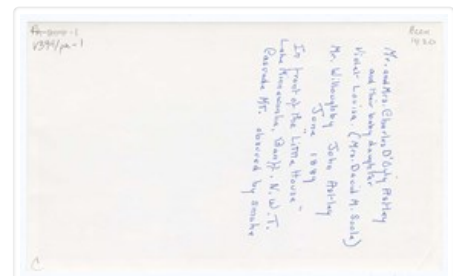 V394/pa-1
Mr. and Mrs. Charles D'Oyly Astley
and their baby daughter
Violet Louisa. (Mrs. David M. Soole)
Mr. Willoughby John Astley
June 1889
In front of the "Little House"
Lake Minnewanka, Banff. N.W.T.
Cascade Mt. obscured by smoke
C